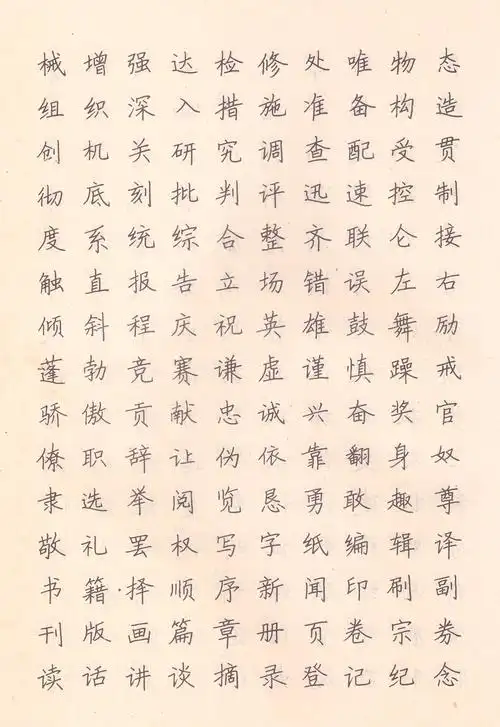 械增强达检修处唯物态
组织深入措施准备构造
创机关研究调查配受贯
彻底刻批判评迅速控制
度系统综合整齐联仑接
触直报告立场错误左右
倾斜程庆祝英雄鼓舞励
蓬勃竞赛谦虚谨慎躁戒
骄傲贡献忠诚兴奋奖官
僚职辞让伪依靠翻身奴
隶选举阅览恳勇敢趣尊
敬礼罢权写字纸编辑译
书籍择顺序新闻印刷副
刊版画篇章册页卷宗券
读话讲谈摘录登记纪念